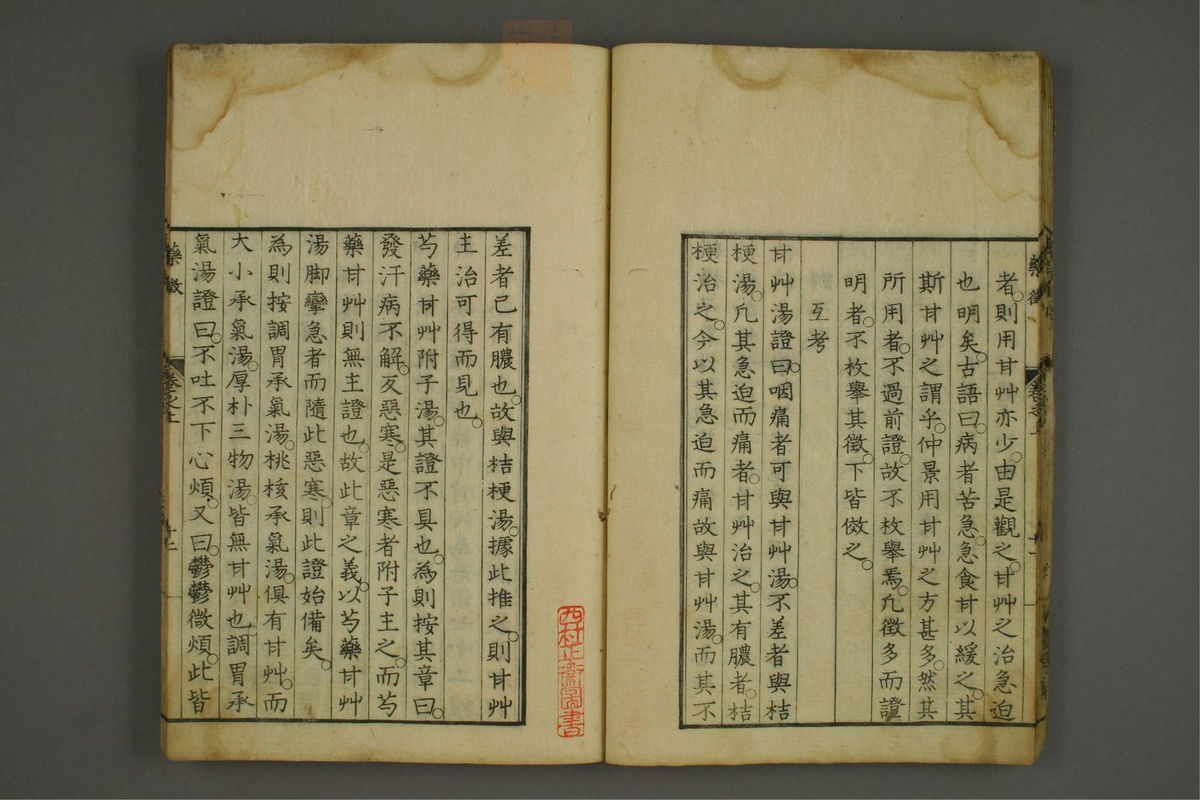 者。則用甘艸亦少。由是觀之。甘艸之治急迫
也明矣。古語曰。病者苦急。急食甘以緩之。其
斯甘艸之謂乎。仲景用甘艸之方甚多。然其
所用者。不過前證。故不枚舉焉。凡徵多而證
明者。不枚舉其徵。下皆倣之。
互考
甘艸湯證曰。咽痛者可與甘艸湯。不差者與桔
梗湯。凡其急迫而痛者。甘艸治之。其有膿者。桔
梗治之。今以其急迫而痛故與甘艸湯。而其不
差者已有膿也。故與桔梗湯。據此推之。則甘艸
主治可得而見也。
芍藥甘艸附子湯。其證不具也。為則按其章曰。
發汗病不解。反惡寒。是惡寒者附子主之。而芍
藥甘艸則無主證也。故此章之義。以芍藥甘艸
湯脚攣急者而隨此惡寒。則此證始備矣。
為則按調胃承氣湯。桃核承氣湯。俱有甘艸。而
大小承氣湯。厚朴三物湯。皆無甘艸也。調胃承
氣湯證曰。不吐不下心煩。又曰。鬱鬱微煩。此皆
藥徵
卷之上
十二
藥徵
卷之上
西村兵衞圖書